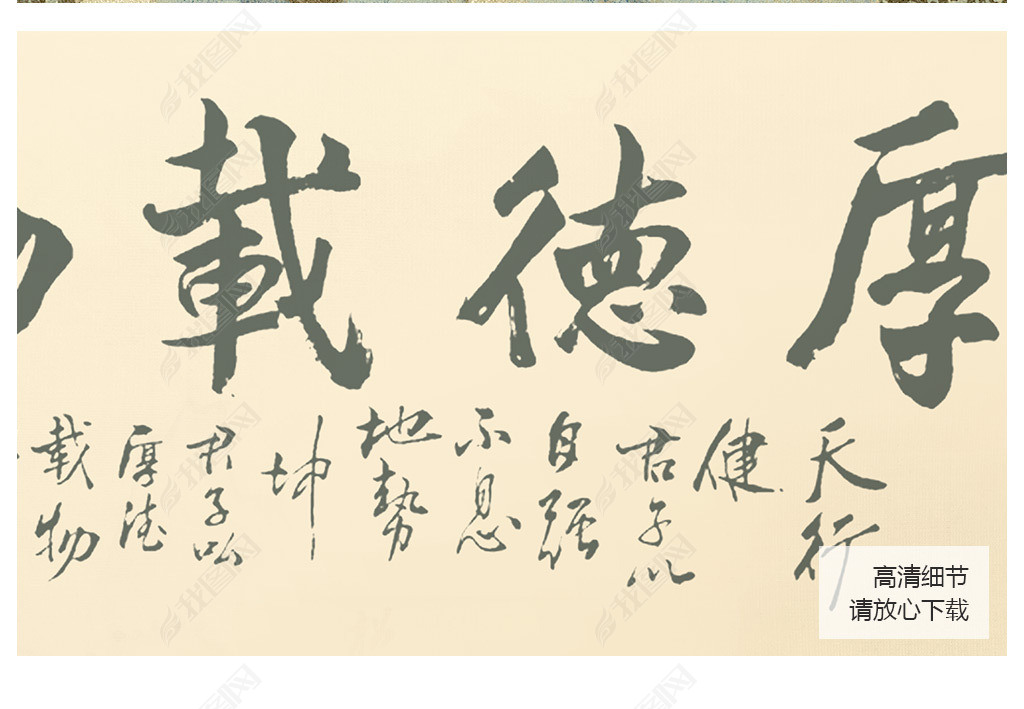 厚德載
天行
健
君子以
自强
不息
地勢
坤
君子以
厚德
載物
高清细节
请放心下载
我图网